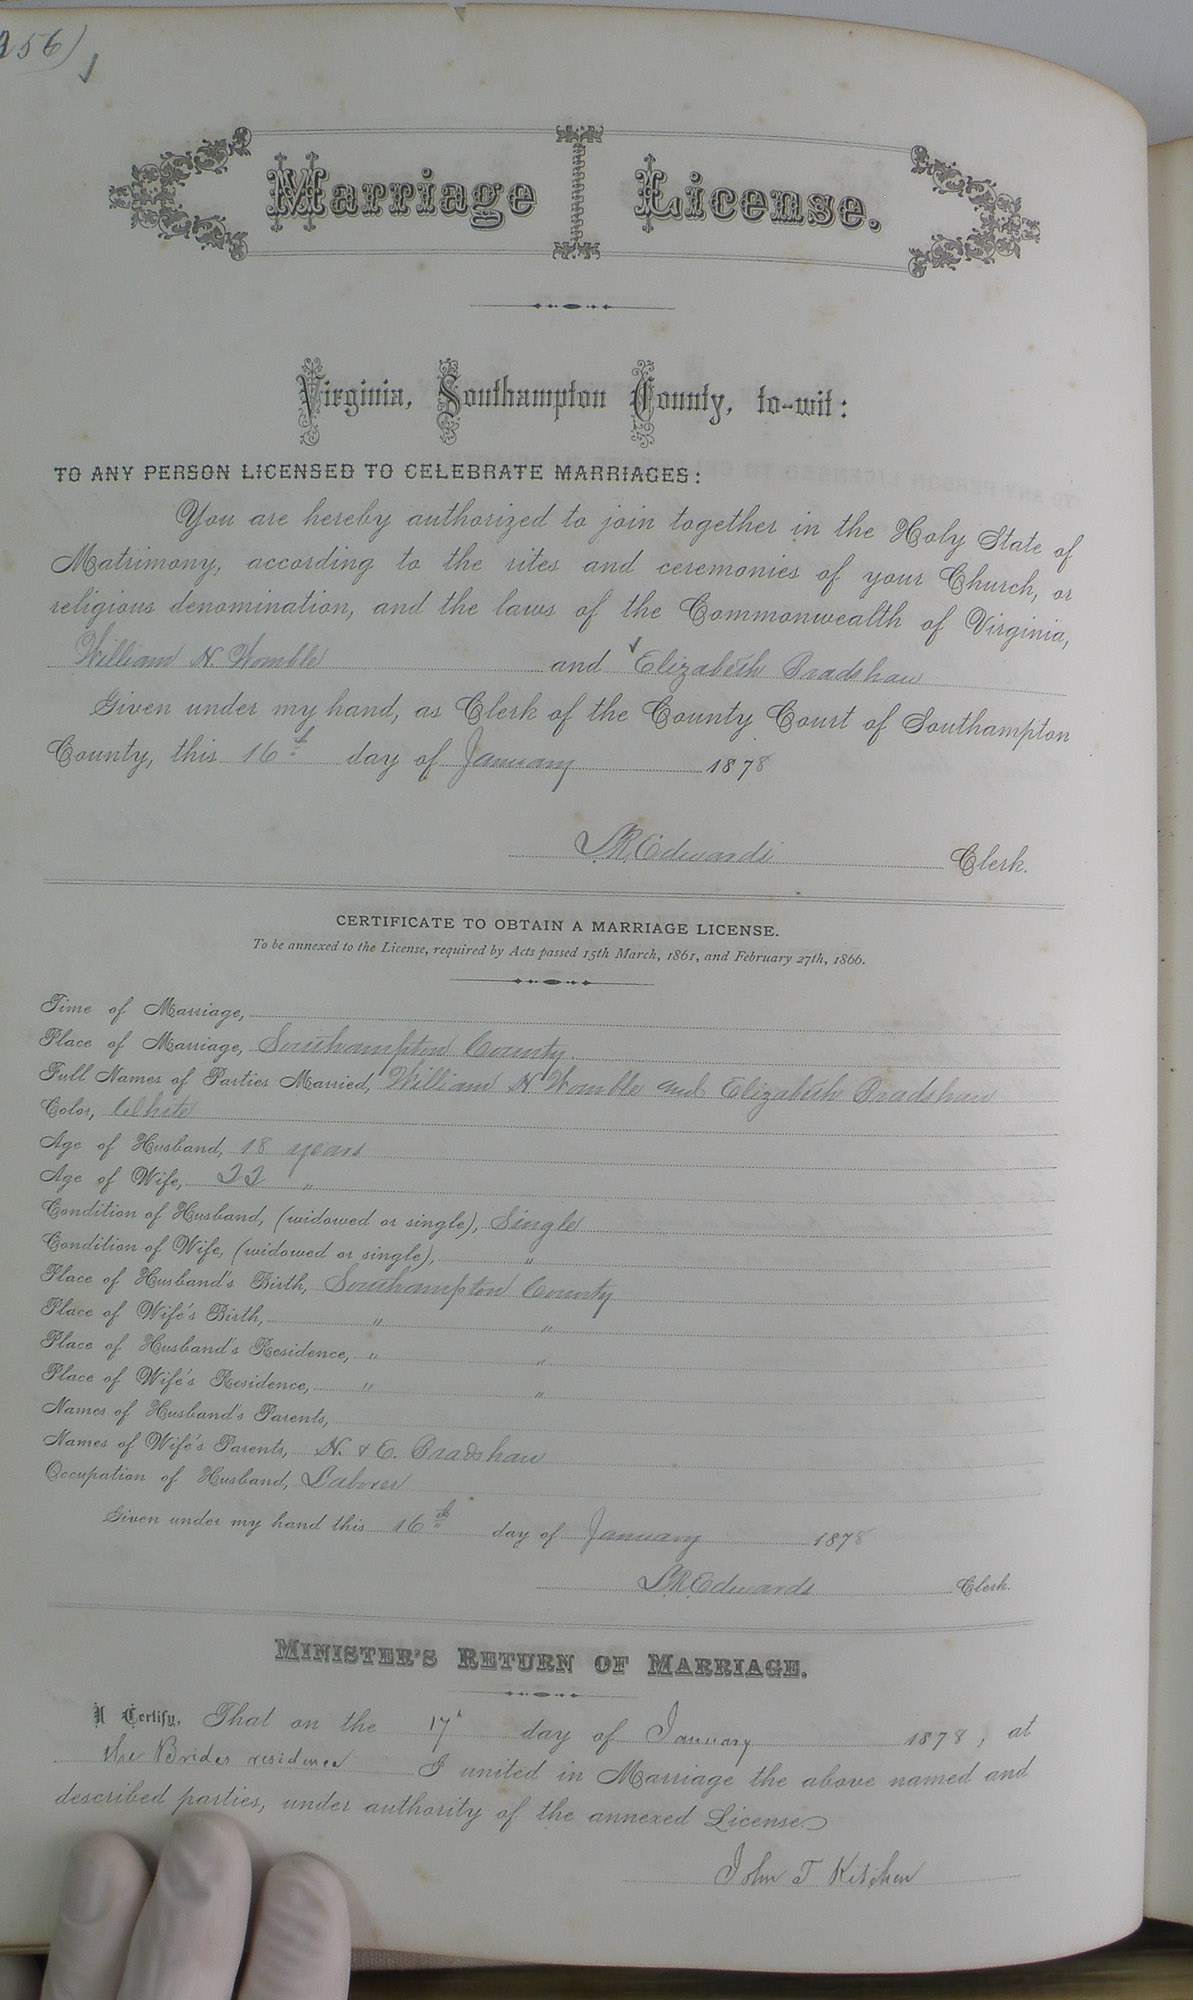 256)
Marriage License.
Virginia, Southampton County, to-wit:
TO ANY PERSON LICENSED TO CELEBRATE MARRIAGES:
You are hereby authorized to join together in the Holy State of
Matrimony, according to the rites and ceremonies of your Church, or
religious denomination, and the laws of the Commonwealth of Virginia,
William N. Womble and Elizabeth Bradshaw
Given under my hand, as Clerk of the County Court of Southampton
County, this 16th day of January 1878
L.R. Edwards Clerk.
CERTIFICATE TO OBTAIN A MARRIAGE LICENSE.
To be annexed to the License, required by Acts passed 15th March, 1861, and February 27th, 1866.
Time of Marriage,
Place of Marriage, Southampton County
Full Names of Parties Married, William N Womble and Elizabeth Bradshaw
Color, White
Age of Husband, 18 years
Age of Wife, 22 "
Condition of Husband, (widowed or single), Single
Condition of Wife, (widowed or single), "
Place of Husband's Birth, Southampton County
Place of Wife's Birth, " "
Place of Husband's Residence, " "
Place of Wife's Residence, " "
Names of Husband's Parents,
Names of Wife's Parents, N. & E. Bradshaw
Occupation of Husband, Laborer
Given under my hand this 16th day of January 1878
L.R. Edwards Clerk.
MINISTER'S RETURN OF MARRIAGE.
I Certify, That on the 17th day of January 1878, at
the Brides residence I united in Marriage the above named and
described parties, under authority of the annexed License
John T Kitchen